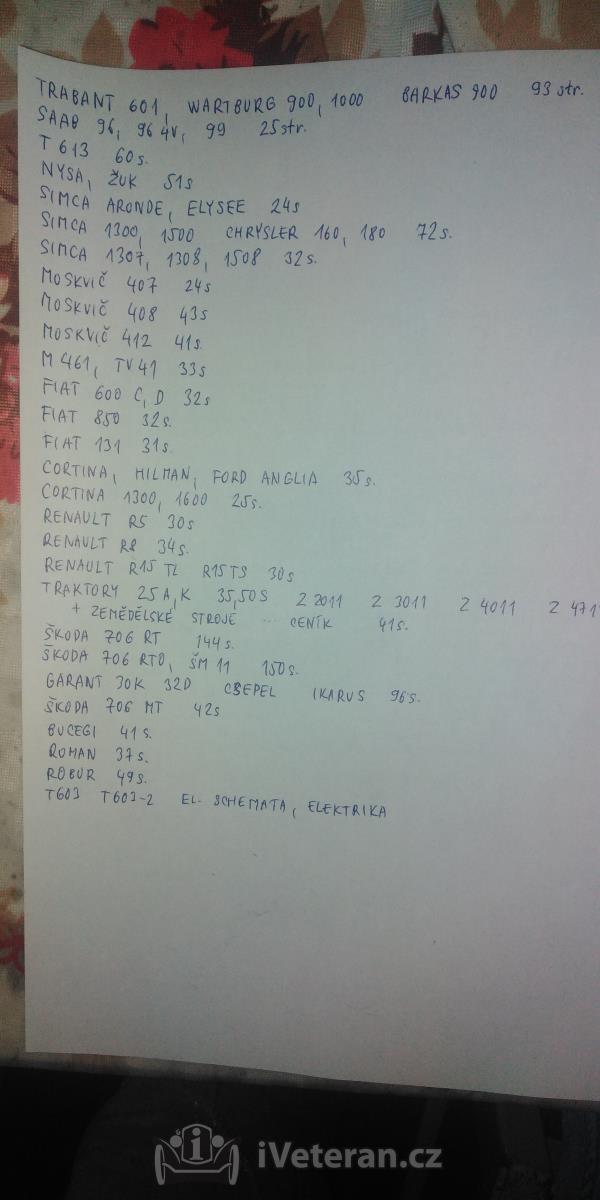 TRABANT 601, WARTBURG 900, 1000 BARKAS 900 93 str.
SAAB 96, 96 4V, 99 25str.
T 613 60s.
NYSA, ŽUK 51s
SIMCA ARONDE, ELYSEE 24s
SIMCA 1300, 1500 CHRYSLER 160, 180 72s.
SIMCA 1307, 1308, 1508 32s.
MOSKVIČ 407 24s
MOSKVIČ 408 43s
MOSKVIČ 412 41s.
M 461, TV 41 33s
FIAT 600 C, D 32s
FIAT 850 32s.
FIAT 131 31s.
CORTINA, HILMAN, FORD ANGLIA 35s.
CORTINA 1300, 1600 25s.
RENAULT R5 30s
RENAULT R8 34s.
RENAULT R15 TL R15 TS 30s
TRAKTORY 25 A, K 35, 50 S Z 2011 Z 3011 Z 4011 Z 471
+ ZEMĚDĚLSKÉ STROJE ... CENÍK 41s.
ŠKODA 706 RT 144s.
ŠKODA 706 RTO, ŠM 11 150s.
GARANT 30K 32D CSEPEL IKARUS 96s.
ŠKODA 706 MT 42s
BUCEGI 41s.
ROMAN 37s.
ROBUR 49s.
T603 T603-2 EL. SCHEMATA, ELEKTRIKA
iVeteran.cz